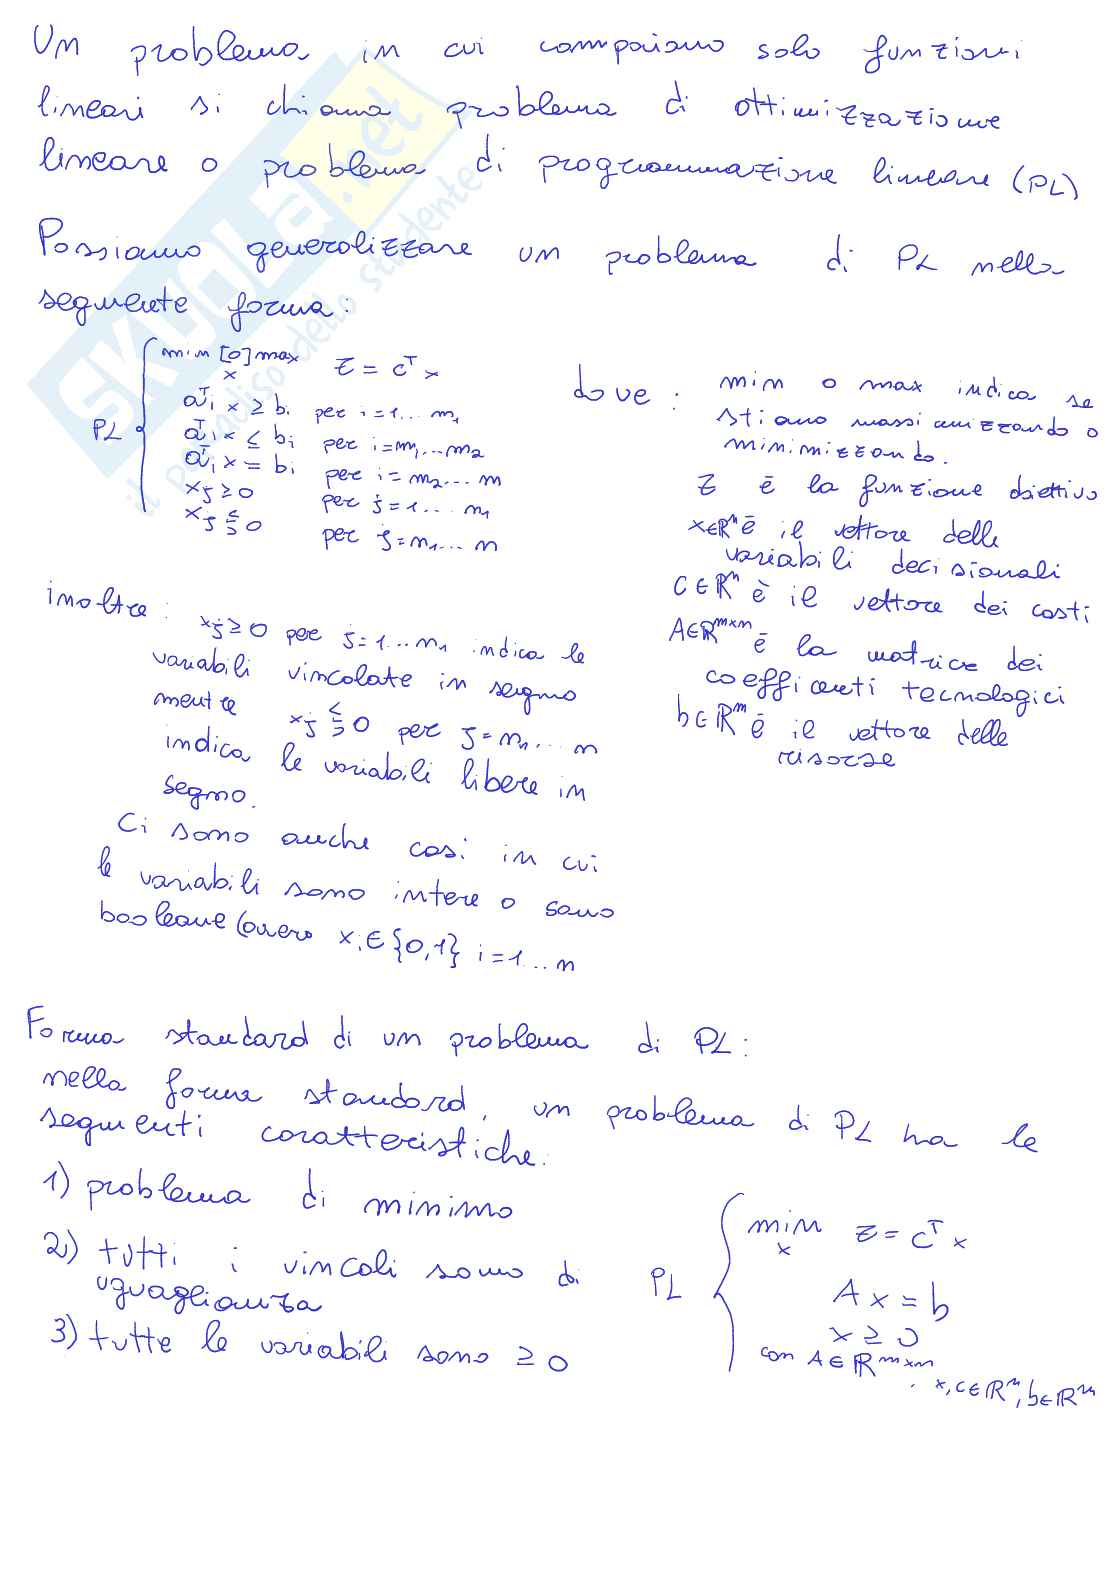 Un problema in cui compaiono solo funzioni
lineari si chiama problema di ottimizzazione
lineare o problema di programmazione lineare (PL)
Possiamo generalizzare un problema di PL nella
seguente forma:
PL { min [o] max x z = cᵀx
aᵀᵢ x ≥ bᵢ per i=1...m₁
aᵀᵢ x ≤ bᵢ per i=m₁...m₂
aᵀᵢ x = bᵢ per i=m₂...m
xⱼ ≥ 0 per j=1...n₁
xⱼ ⪋ 0 per j=n₁...n
dove: min o max indica se
stiamo massimizzando o
minimizzando.
z è la funzione obiettivo
x∈ℝⁿ è il vettore delle
variabili decisionali
c∈ℝⁿ è il vettore dei costi
A∈ℝᵐˣⁿ è la matrice dei
coefficenti tecnologici
b∈ℝᵐ è il vettore delle
risorse
inoltre: xⱼ≥0 per j=1...n₁ indica le
variabili vincolate in segno
mentre xⱼ ⪋ 0 per j=n₁...n
indica le variabili libere in
segno.
Ci sono anche casi in cui
le variabili sono intere o sono
booleane (ovvero xᵢ∈{0,1} i=1...n
Forma standard di un problema di PL:
nella forma standard, un problema di PL ha le
seguenti caratteristiche:
1) problema di minimo
2) tutti i vincoli sono di
uguaglianza
3) tutte le variabili sono ≥ 0
PL { min x z = cᵀx
Ax = b
x ≥ 0
con A∈ℝᵐˣⁿ
, x,c∈ℝⁿ, b∈ℝᵐ
SKUOLA.net
il paradiso dello studente